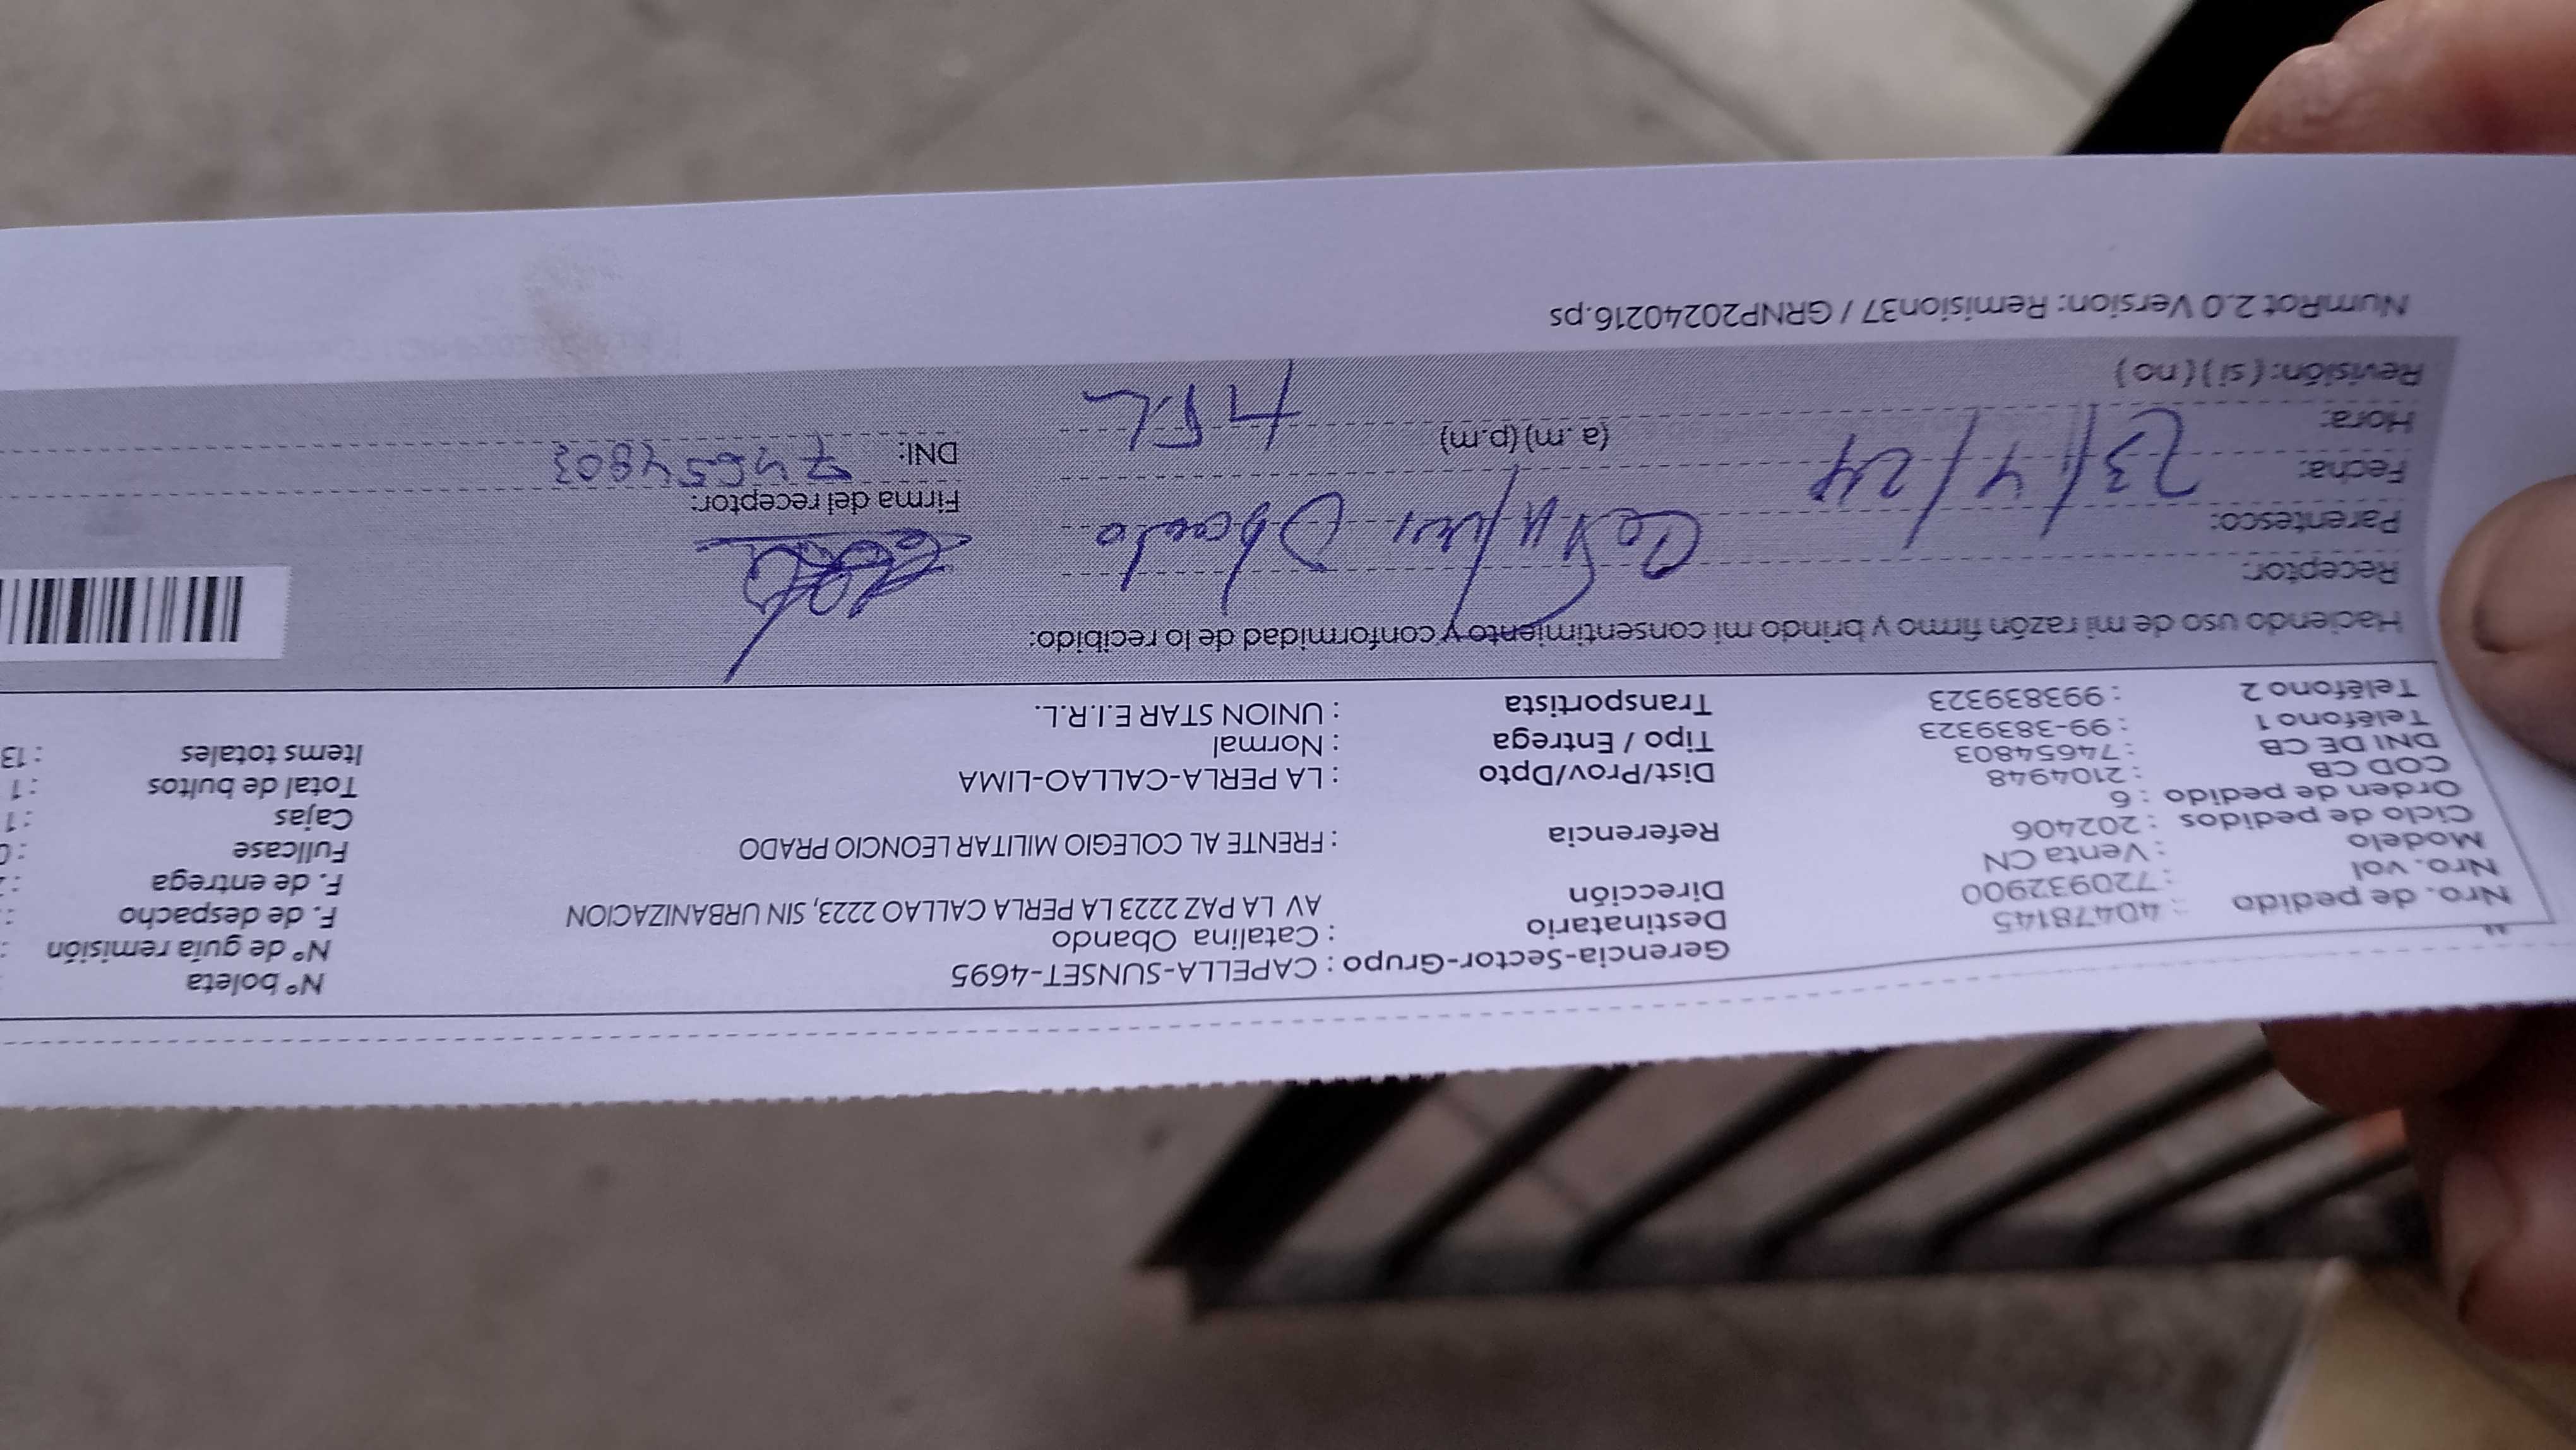 Nro. de pedido : 40478145
Nro. vol : 720932900
Modelo : Venta CN
Ciclo de pedidos : 202406
Orden de pedido : 6
COD CB : 2104948
DNI DE CB : 74654803
Teléfono 1 : 99-3839323
Teléfono 2 : 993839323
Gerencia-Sector-Grupo : CAPELLA-SUNSET-4695
Destinatario : Catalina Obando
Dirección AV LA PAZ 2223 LA PERLA CALLAO CALLAO 2223, SIN URBANIZACION
Referencia : FRENTE AL COLEGIO MILITAR LEONCIO PRADO
Dist/Prov/Dpto : LA PERLA-CALLAO-LIMA
Tipo / Entrega : Normal
Transportista : UNION STAR E.I.R.L.
N° boleta :
N° de guía remisión :
F. de despacho :
F. de entrega :
Fullcase :
Cajas : 1
Total de bultos : 1
Items totales : 13
Haciendo uso de mi razón firmo y brindo mi consentimiento y conformidad de lo recibido:
Receptor:
Parentesco: Obando
Fecha: 23/4/24
Hora: (a.m) (p.m)
Revisión: (si) (no)
Firma del receptor:
DNI: 74654803
NumRot 2.0 Version: Remision37 / GRNP20240216.ps